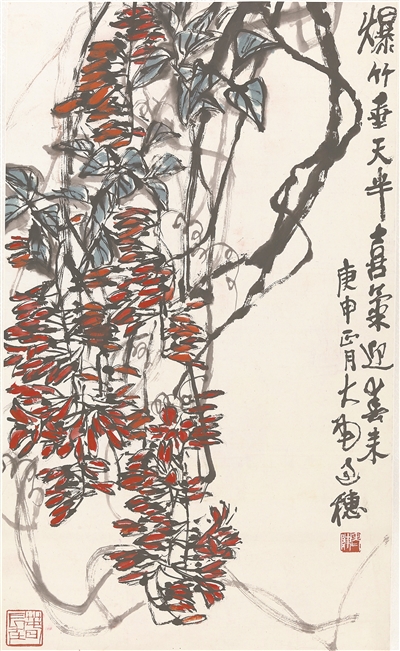 爆竹垂天半喜气迎春来
庚申正月大南过穗